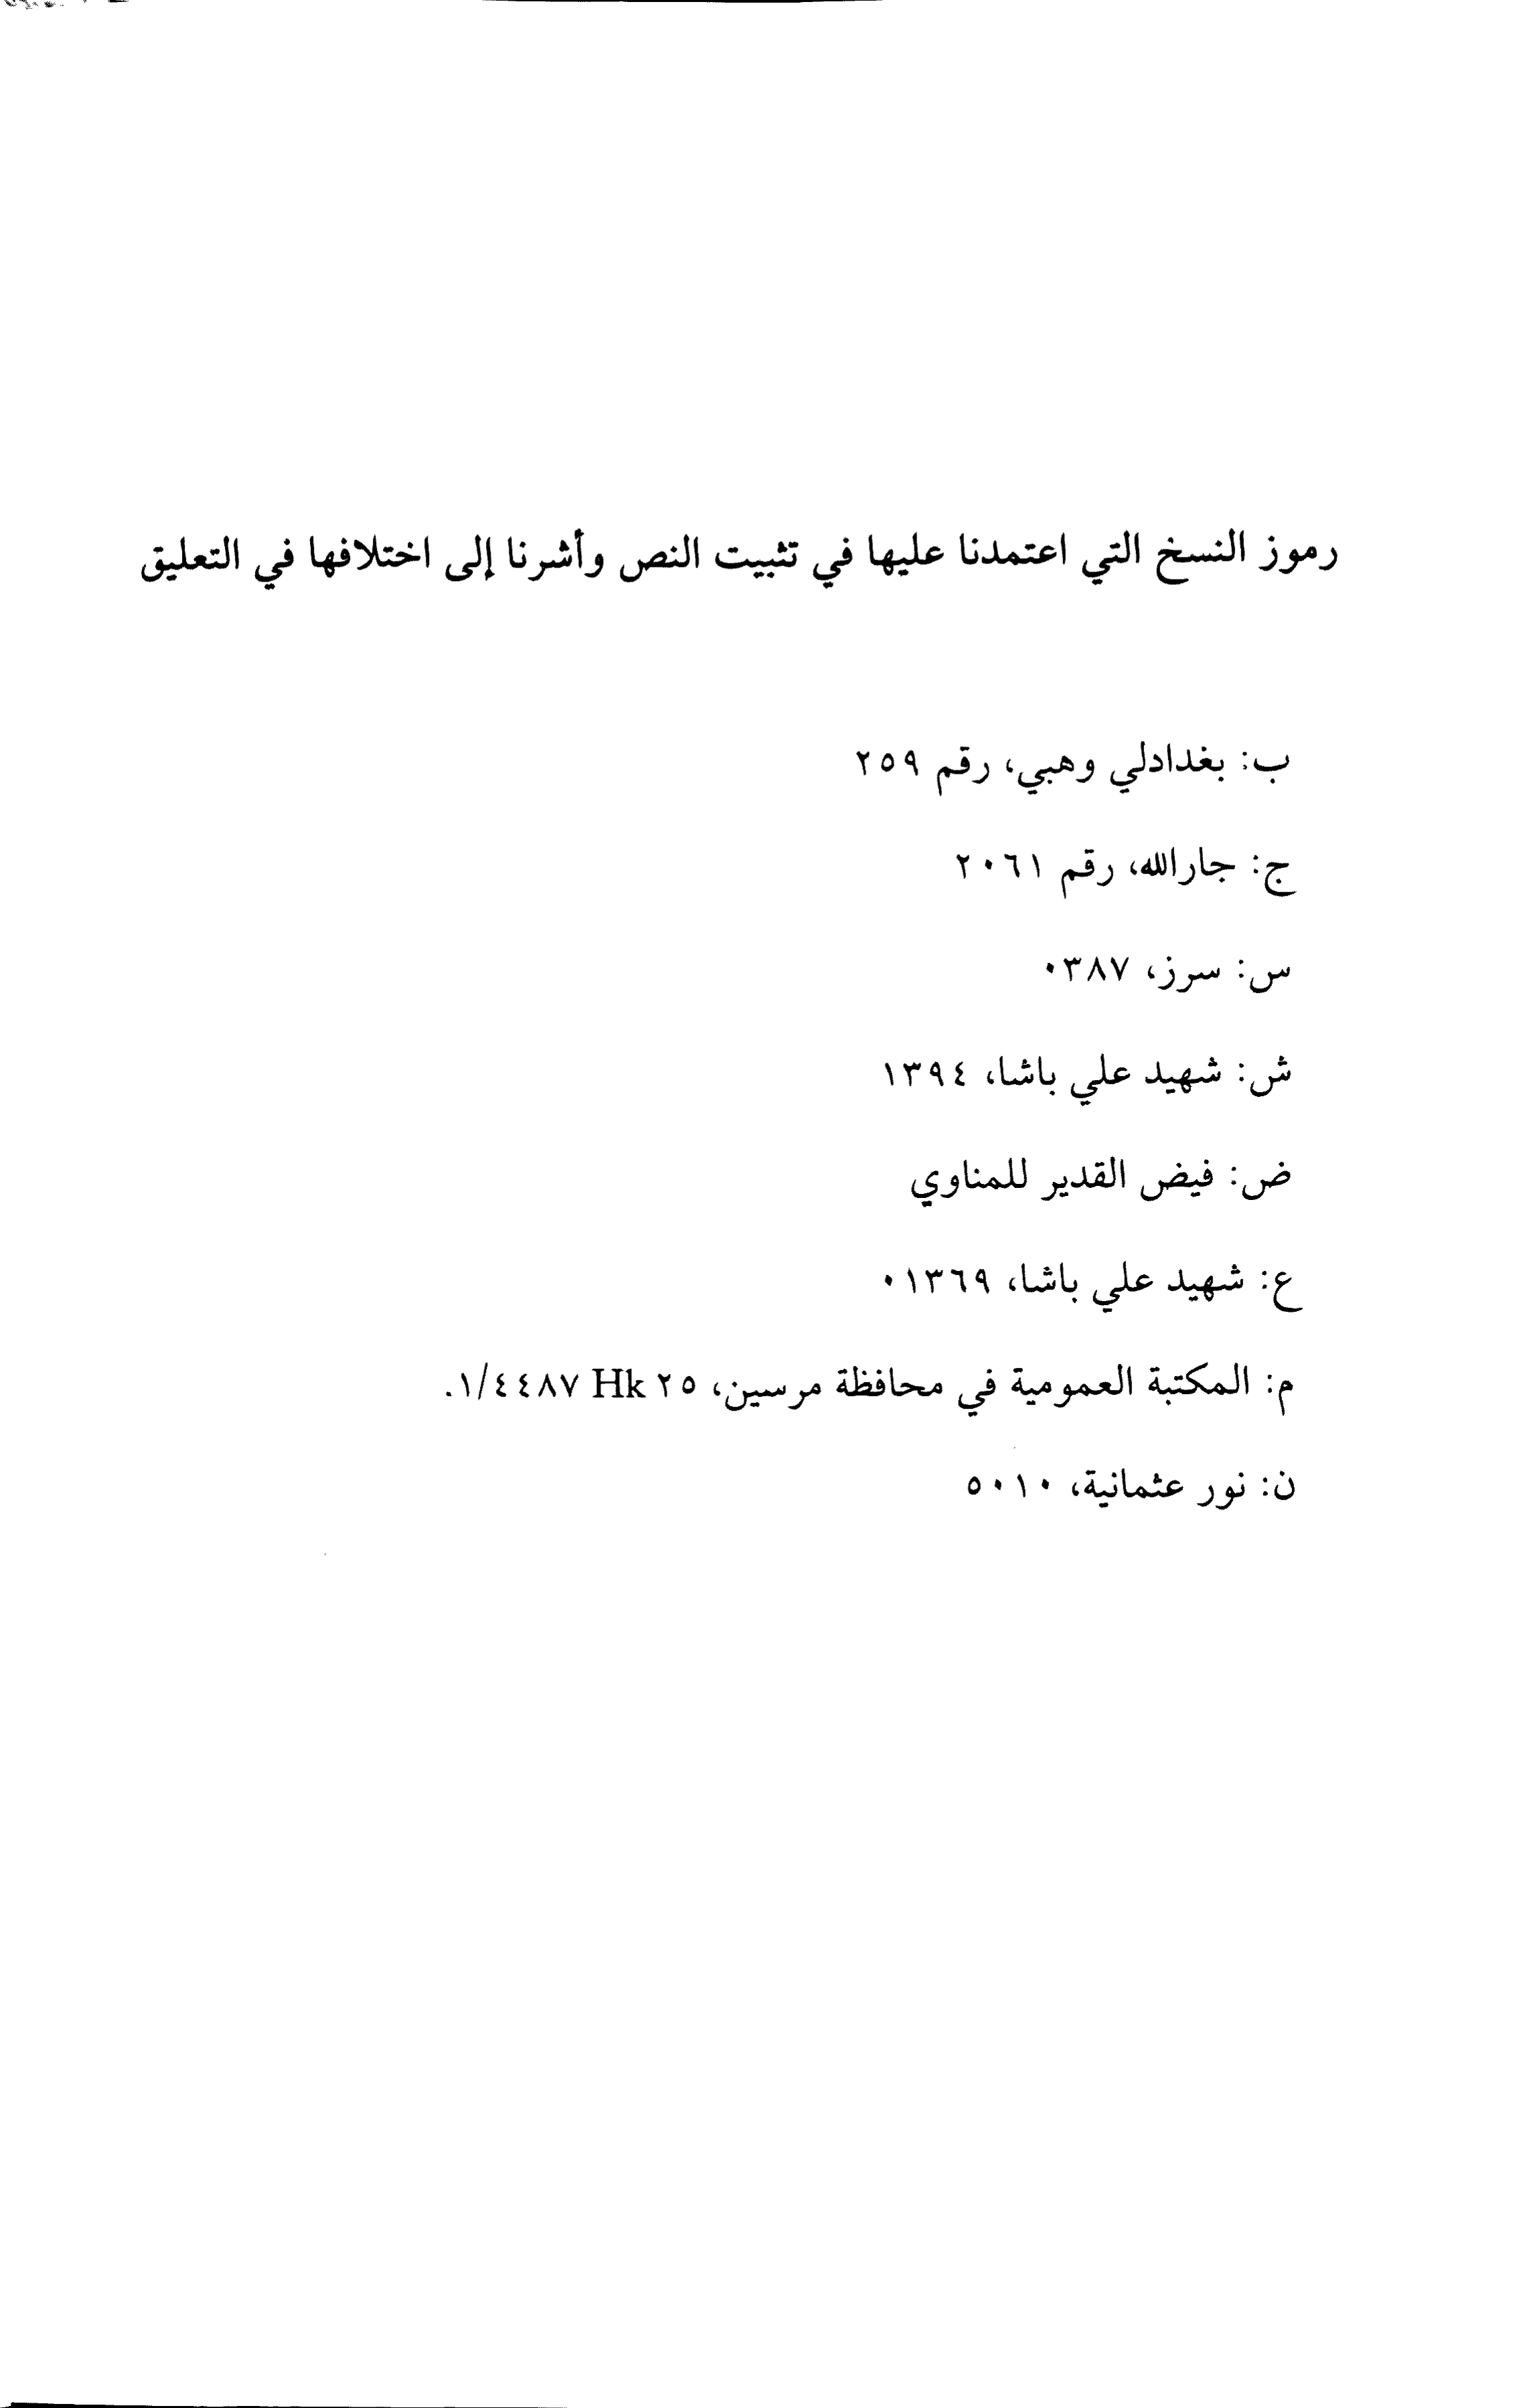 رموز النسخ التي اعتمدنا عليها في تثبيت النص وأشرنا إلى اختلافها في التعليق
ب: بغدادلي وهبي، رقم ٢٥٩
ج: جارالله، رقم ٢٠٦١
س: سرز، ٠٣٨٧
ش: شهيد علي باشا، ١٣٩٤
ض: فيض القدير للمناوي
ع: شهيد علي باشا، ٠١٣٦٩
م: المكتبة العمومية في محافظة مرسين، ٢٥ Hk ١/٤٤٨٧.
ن: نور عثمانية، ٥٠١٠